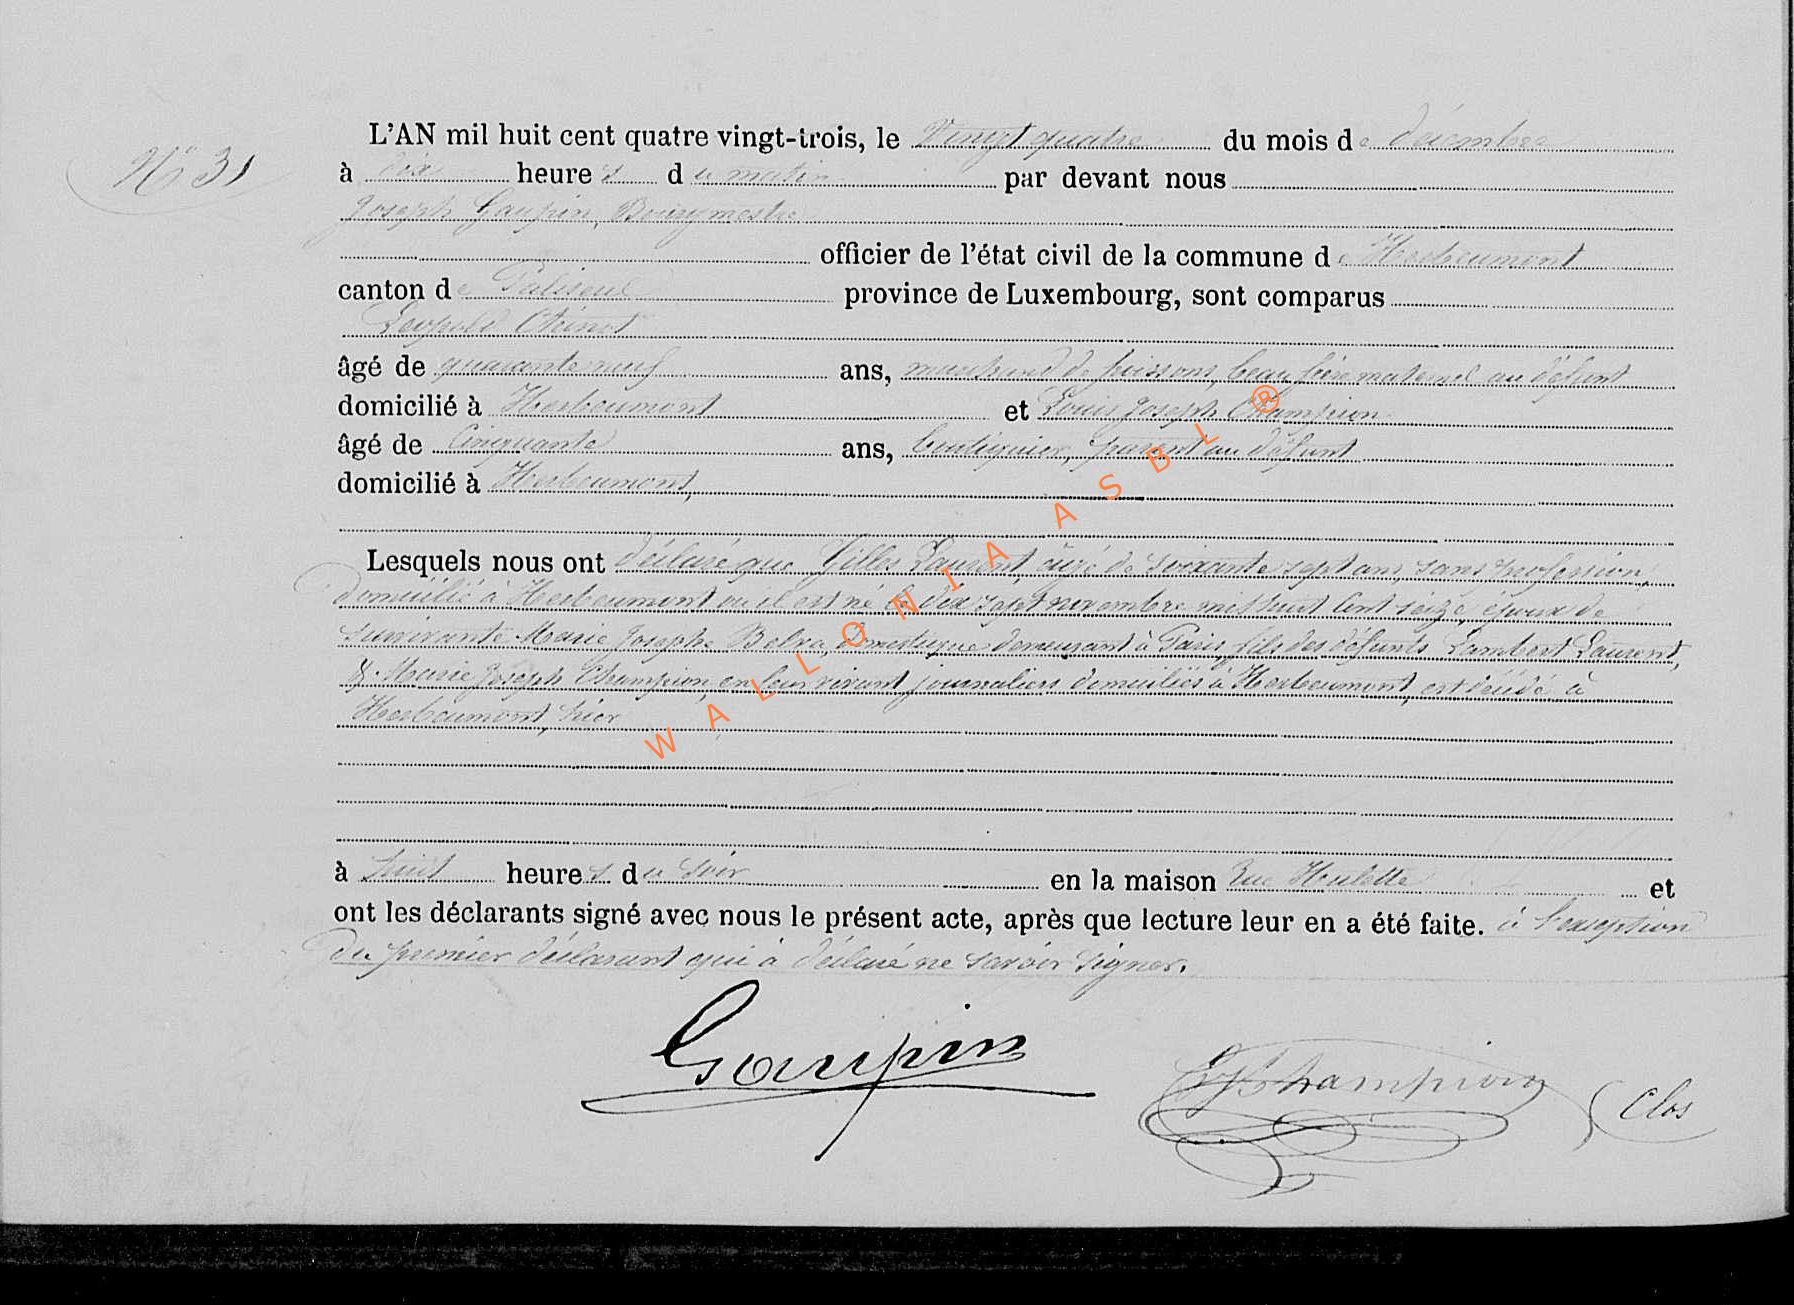 N° 31
L'AN mil huit cent quatre vingt-trois, le Vingt quatre du mois de décembre
à dix heures du matin par devant nous
Joseph Gaupin, Bourgmestre
officier de l'état civil de la commune de Herbeumont
canton de Paliseul province de Luxembourg, sont comparus
Léopold
âgé de quarante neuf ans, marchand de poissons, beau frère maternel au défunt
domicilié à Herbeumont et Louis Joseph Champion
âgé de Cinquante ans, boutiquier, parent au défunt
domicilié à Herbeumont,
Lesquels nous ont déclaré que Gilles Laurent, âgé de soixante sept ans, sans profession,
domicilié à Herbeumont où il est né le dix sept novembre mil huit cent seize, époux de
survivante Marie Josephe domestique demeurant à Paris, fils des défunts Lambert Laurent,
& Marie Joseph Champion, en leur vivant journaliers domiciliés à Herbeumont, est décédé à
Herbeumont, hier
à huit heures du soir en la maison Rue Hulette et
ont les déclarants signé avec nous le présent acte, après que lecture leur en a été faite. à l'exception
du premier déclarant qui a déclaré ne savoir signer.
Gaupin
Champion
Clos
WALLONIA ASBL ®